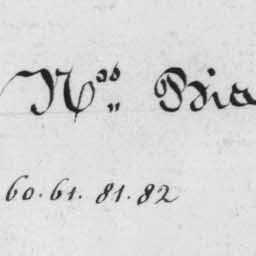 Nos
60. 61. 81. 82